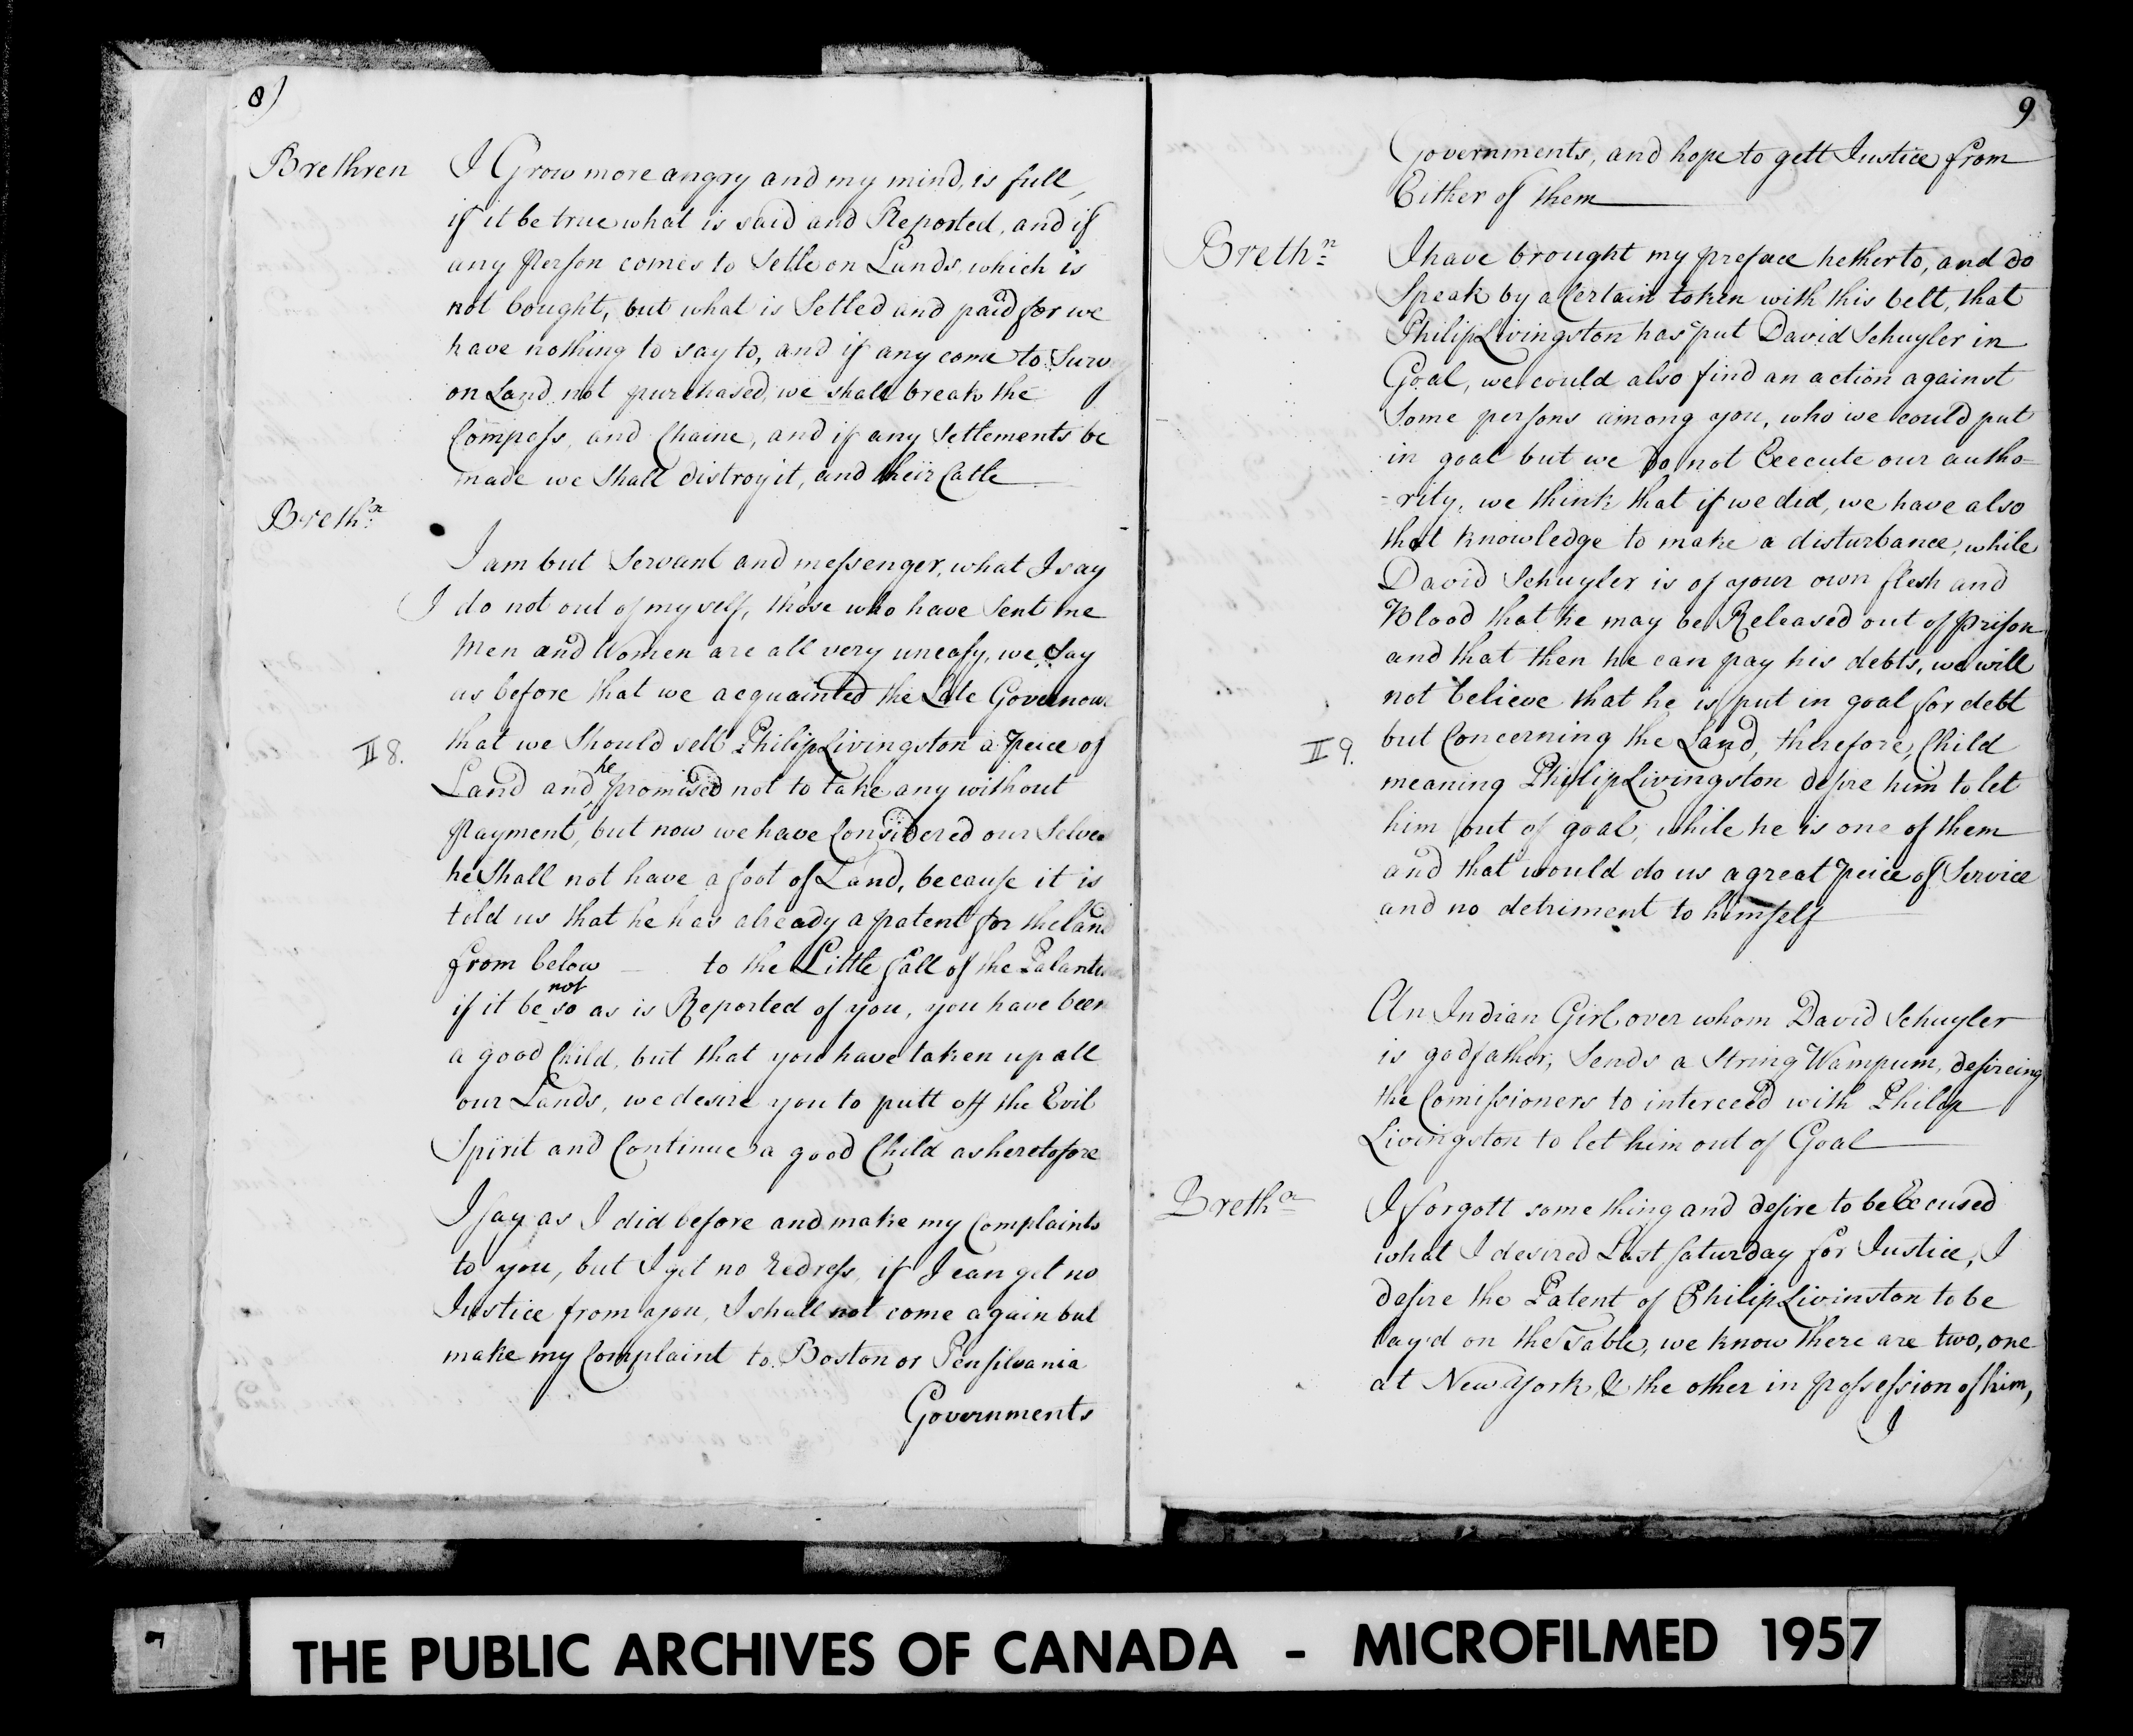 8)
Brethren I Grow more angry and my mind, is full,
if it be true what is said and Reported, and if
any Person comes to Setle on Lands, which is
not bought, but what is Setled and paid for we
have nothing to say to, and if any come to Surv
on Land not purchased, we shall break the
Compass, and Chaine, and if any Setlements be
made we Shall distroy it, and their Catle
Breth:n
I am but Servant and messenger, what I say
I do not out of my self, those who have Sent me
Men and Women are all very uneasy, we Say
as before that we acquainted the Late Governour
that we Should sell Philip Livingston a Peice of
II 8.
Land and he promised not to take any without
Payment, but now we have Considered our Selves
he Shall not have a foot of Land, because it is
told us that he has already a patent for the land
from below — to the Little fall of the
if it be not so as is Reported of you, you have been
a good Child, but that you have taken up all
our Lands, we desire you to putt off the Evil
Spirit and Continue a good Child as heretofore
I say as I did before and make my Complaints
to you, but I get no Redress, if I can get no
Justice from you, I shall not come again but
make my Complaint to Boston or Pensilvania
Governments
9
Governments, and hope to gett Justice from
Either of them
Brethn I have brought my preface hetherto, and do
Speak by a Certain token with this belt, that
Philip Livingston has put David Schuyler in
Goal, we could also find an action against
Some persons among you, who we could put
in goal but we Do not Execute our autho=
=rity, we think that if we did, we have also
that knowledge to make a disturbance, while
David Schuyler is of your own flesh and
Blood that he may be Released out of prison
and that then he can pay his debts, we will
not believe that he is put in goal for debt
II 9. but Concerning the Land, therefore, Child
meaning Philip Livingston desire him to let
him out of goal, while he is one of them
and that would do us a great peice of Service
and no detriment to himself
An Indian Girl over whom David Schuyler
is godfather, Sends a String Wampum, desireing
the Comissioners to interceed with Philip
Livingston to let him out of Goal
Brethn I forgott some thing and desire to be Excused
what I desired Last Saturday for Justice, I
desire the Patent of Philip Livinston to be
lay'd on the Table, we know there are two, one
at New York, & the other in Possession of him,
I
7
THE PUBLIC ARCHIVES OF CANADA - MICROFILMED 1957